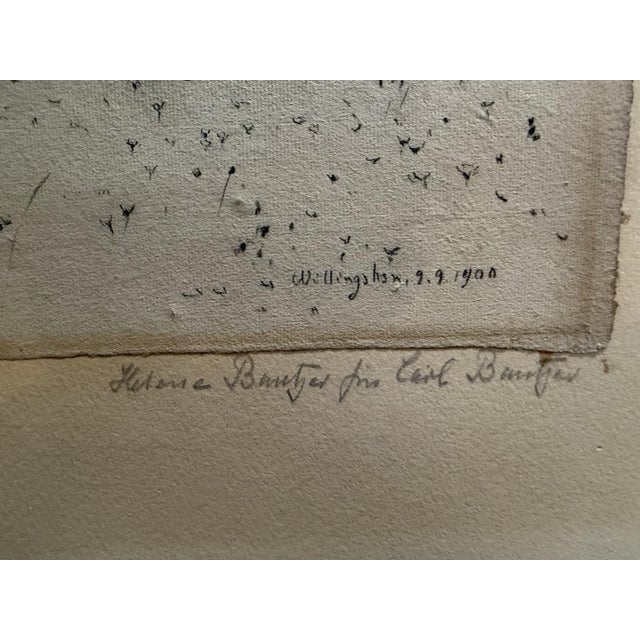 Willingshan, 9.9.1900
Helene Bantzer für Carl Bantzer